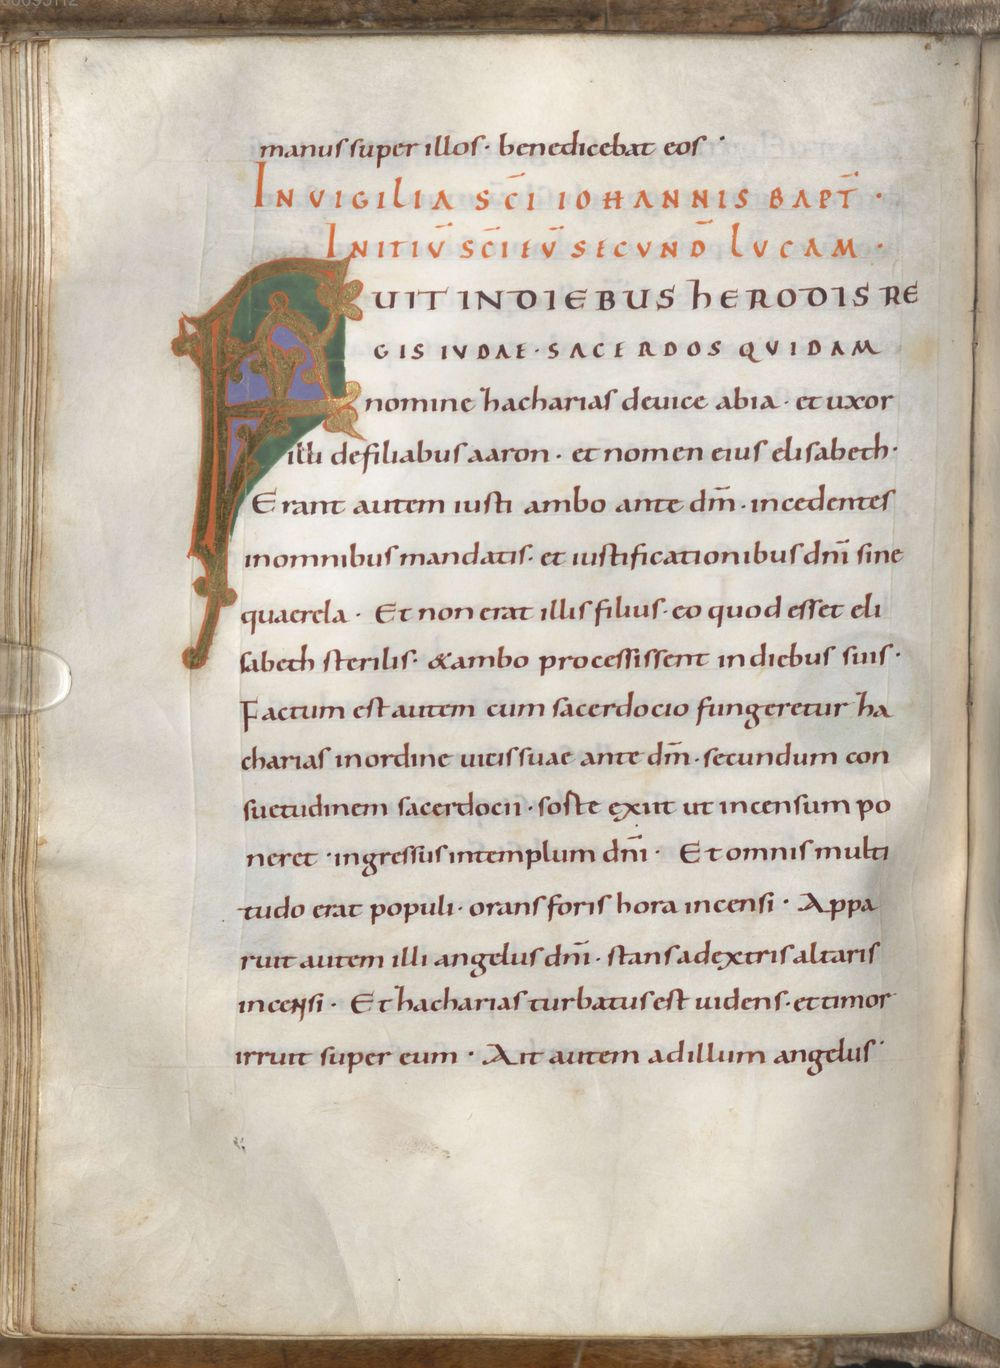 manus super illos· benedicebat eos·
IN VIGILIA SC̄I IOHANNIS BAPT̄·
INITIŪ SC̄I EŪ SECVND̄ LVCAM·
FUIT IN DIEBUS hERODIS RE
GIS IVDAE· SACERDOS QVIDAM
nomine hacharias de uice abia· et uxor
illi de filiabus aaron· et nomen eius elisabeth·
Erant autem iusti ambo ante dm̄· incedentes
in omnibus mandatis· et iustificationibus dn̄i sine
quaerela· Et non erat illis filius· eo quod esset eli
sabeth sterilis· &ambo processissent in diebus suis·
Factum est autem cum sacerdocio fungeretur ha
charias in ordine uicis suae ante dm̄· secundum con
suetudinem sacerdocii· soste exiit ut incensum po
neret· ingressus in templum dn̄i· Et omnis multi
tudo erat populi· orans foris hora incensi· Appa
ruit autem illi angelus dn̄i· stans a dextris altaris
incensi· Et hacharias turbatus est uidens· et timor
irruit super eum· Ait autem ad illum angelus·